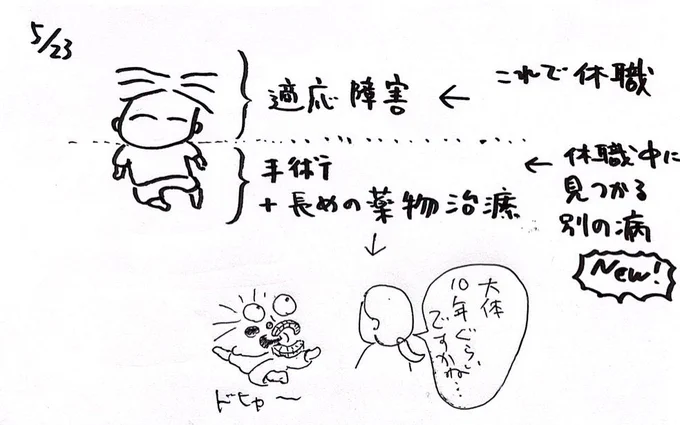 5/23
適応障害 ← これで休職
手術
+長めの薬物治療
← 休職中に
見つかる
別の病
New!
↓
大体
10年ぐらい
ですかね…
ドヒャ〜